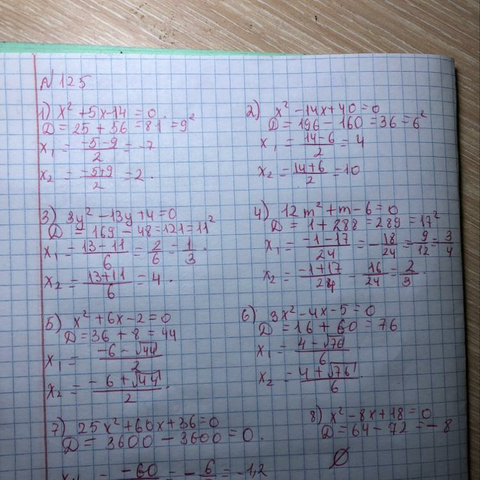 № 125
1) x² + 5x - 14 = 0.
D = 25 + 56 = 81 = 9²
x₁ = (-5-9)/2 = -7
x₂ = (-5+9)/2 = 2.
2) x² - 14x + 40 = 0
D = 196 - 160 = 36 = 6²
x₁ = (14-6)/2 = 4
x₂ = (14+6)/2 = 10
3) 3y² - 13y + 4 = 0
D = 169 - 48 = 121 = 11²
x₁ = (13-11)/6 = 2/6 = 1/3.
x₂ = (13+11)/6 = 4.
4) 12m² + m - 6 = 0
D = 1 + 288 = 289 = 17²
x₁ = (-1-17)/24 = -18/24 = 9/12 = 3/4
x₂ = (-1+17)/24 = 16/24 = 2/3.
5) x² + 6x - 2 = 0
D = 36 + 8 = 44
x₁ = (-6 - √44)/2
x₂ = (-6 + √44)/2.
6) 3x² - 4x - 5 = 0
D = 16 + 60 = 76
x₁ = (4 - √76)/6
x₂ = (4 + √76)/6.
7) 25x² + 60x + 36 = 0
D = 3600 - 3600 = 0.
-60 = -6 = -1,2
8) x² - 8x + 18 = 0
D = 64 - 72 = -8
∅